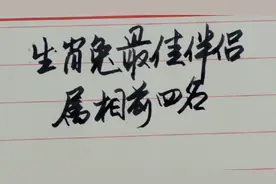 生肖兔最佳伴侣
属相前四名